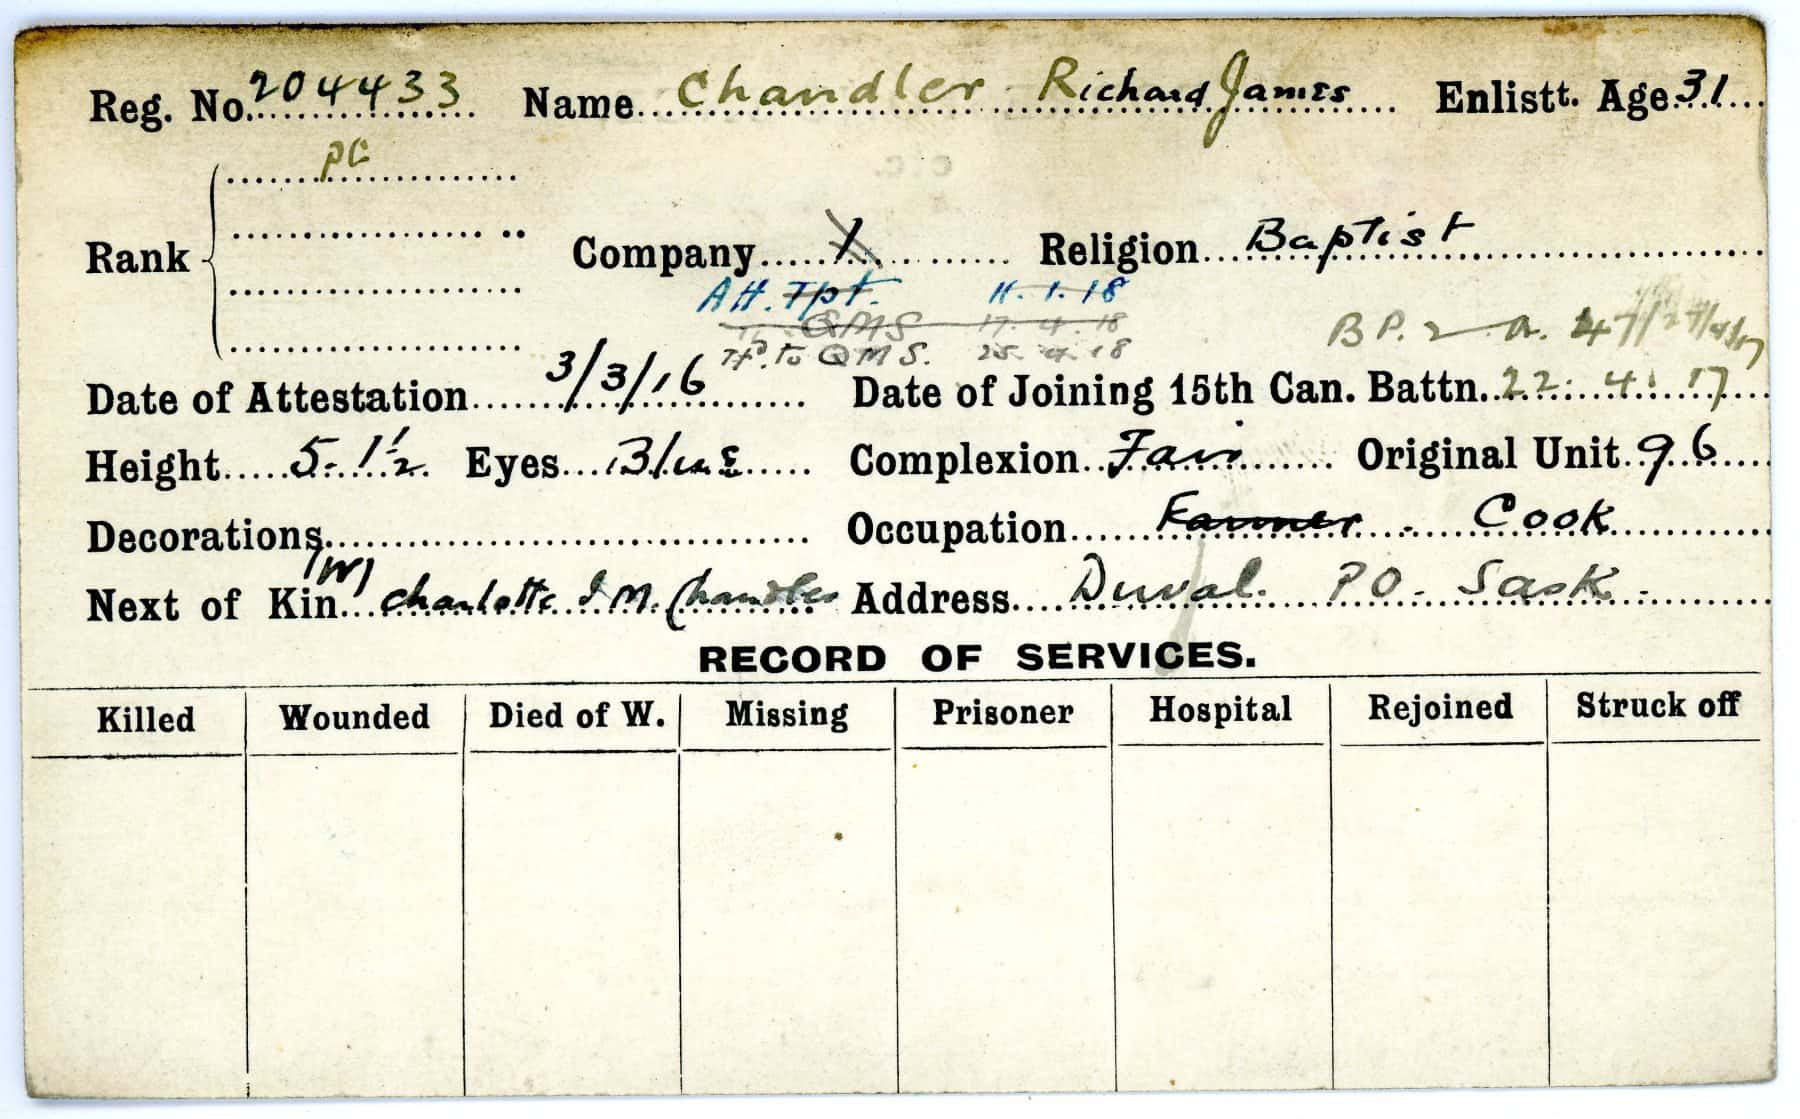 Reg. No. 204433 Name Chandler Richard James Enlistt. Age 31
Rank
Company 1 Religion Baptist
Att. Tpt. 11.1.18
QMS 17.4.18
Tfd. to QMS. 25.4.18
Date of Attestation 3/3/16 Date of Joining 15th Can. Battn. 22.4.17
Height 5-1½ Eyes Blue Complexion Fair Original Unit 96
Decorations Occupation Farmer - Cook
Next of Kin (W) Charlotte I M. Chandler Address Duval. PO. Sask.
RECORD OF SERVICES.
Killed Wounded Died of W. Missing Prisoner Hospital Rejoined Struck off